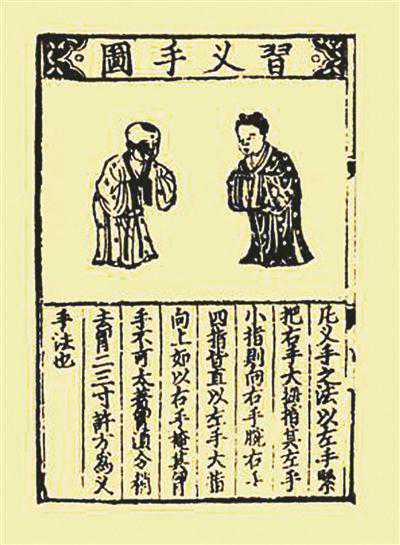 習叉手圖
凡叉手之法以左手緊
把右手大拇指其左手
小指則向右手腕右手
四指皆直以左手大指
向上如以右手掩其胷
手不可太著胷須令稍
去胷二三寸許方爲叉
手法也